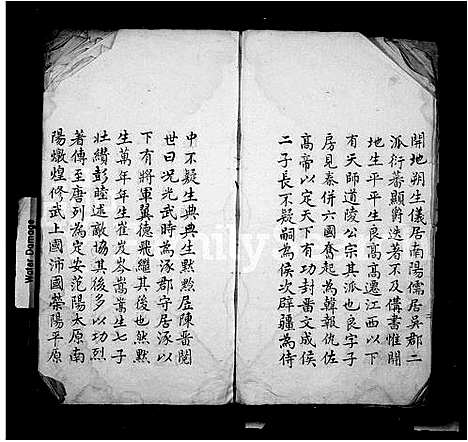 開地朔生儀居南陽儒居吳郡二
派衍蕃顯爵迭著不及備書惟開
地生平平生良高高遷江西以下
有天師道陵公宗其派也良字子
房見秦併六國奮起為韓報仇佐
高帝以定天下有功封留文成侯
二子長不疑嗣為侯次辟疆為侍
中不疑生典典生默默居陳晉閱
世曰况光武時為涿郡守居涿以
下有將軍翼德飛繼其後也然默
生萬年年生崔岌岑嵩嵩生七子
壯纘彭睦述敵協其後多以功烈
著傳至唐列為定安范陽太原南
陽燉煌修武上國沛國滎陽平原
Water Damage